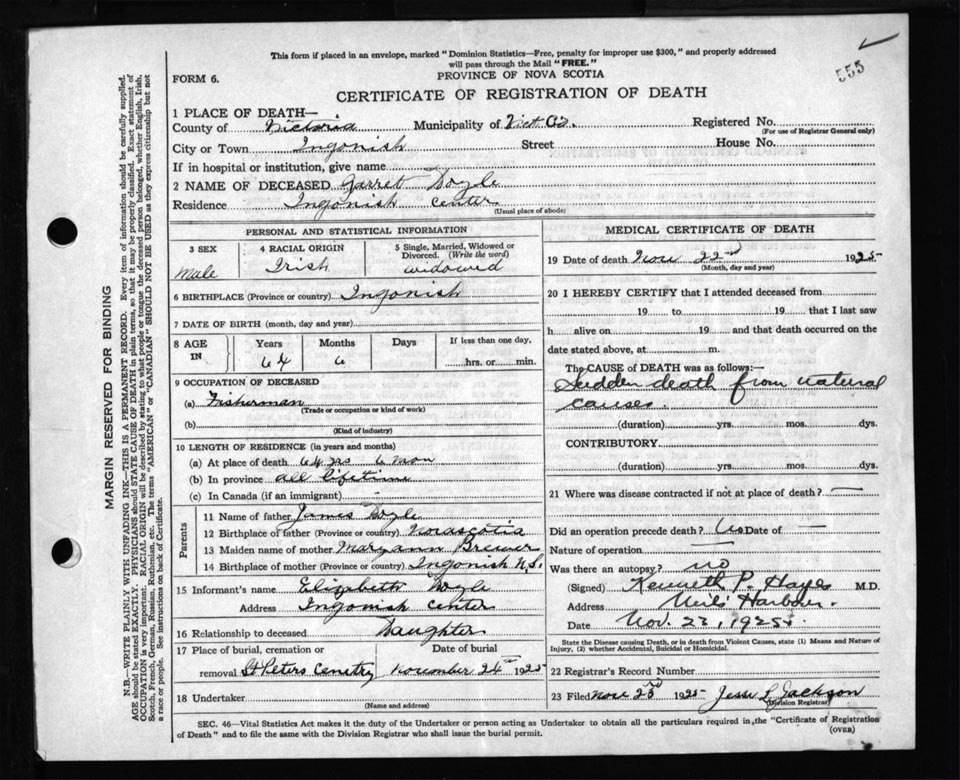 This form if placed in an envelope, marked "Dominion Statistics—Free, penalty for improper use $300," and properly addressed
will pass through the Mail "FREE."
555
FORM 6.
PROVINCE OF NOVA SCOTIA
CERTIFICATE OF REGISTRATION OF DEATH
1 PLACE OF DEATH—
County of Victoria Municipality of Vict Co. Registered No.
(For use of Registrar General only)
City or Town Ingonish Street House No.
If in hospital or institution, give name
2 NAME OF DECEASED Garret Doyle
Residence Ingonish center
(Usual place of abode)
PERSONAL AND STATISTICAL INFORMATION
3 SEX 4 RACIAL ORIGIN 5 Single, Married, Widowed or
Divorced. (Write the word)
Male Irish widowed
6 BIRTHPLACE (Province or country) Ingonish
7 DATE OF BIRTH (month, day and year)
8 AGE IN Years Months Days If less than one day,
64 6 hrs. or min.
9 OCCUPATION OF DECEASED
(a) Fisherman
(Trade or occupation or kind of work)
(b)
(Kind of industry)
10 LENGTH OF RESIDENCE (in years and months)
(a) At place of death 64 yrs 6 Mon
(b) In province all lifetime
(c) In Canada (if an immigrant) -
Parents
11 Name of father James Doyle
12 Birthplace of father (Province or country) Novascotia
13 Maiden name of mother Maryann Brewer
14 Birthplace of mother (Province or country) Ingonish N.S.
15 Informant's name Elizabeth Doyle
Address Ingonish center
16 Relationship to deceased Daughter
17 Place of burial, cremation or Date of burial
removal St Peters Cemetry November 24th 1925
18 Undertaker
(Name and address)
MEDICAL CERTIFICATE OF DEATH
19 Date of death Nov 22nd 1925
(Month, day and year)
20 I HEREBY CERTIFY that I attended deceased from
19 to 19 that I last saw
h alive on 19 and that death occurred on the
date stated above, at m.
The CAUSE OF DEATH was as follows:—
Sudden death from natural
causes.
(duration) yrs. mos. dys.
CONTRIBUTORY
(duration) yrs. mos. dys.
21 Where was disease contracted if not at place of death? —
Did an operation precede death? No Date of —
Nature of operation —
Was there an autopsy? no
(Signed) Kenneth P. Hayes M.D.
Address Neils Harbour.
Date Nov. 23, 1925.
State the Disease causing Death, or in death from Violent Causes, state (1) Means and Nature of
Injury, (2) whether Accidental, Suicidal or Homicidal.
22 Registrar's Record Number
23 Filed Nov 23rd 1925 Jesse L Jackson
(Division Registrar)
SEC. 46—Vital Statistics Act makes it the duty of the Undertaker or person acting as Undertaker to obtain all the particulars required in the "Certificate of Registration
of Death" and to file the same with the Division Registrar who shall issue the burial permit.
(OVER)
MARGIN RESERVED FOR BINDING
N.B.—WRITE PLAINLY WITH UNFADING INK—THIS IS A PERMANENT RECORD. Every item of information should be carefully supplied.
AGE should be stated EXACTLY. PHYSICIANS should STATE CAUSE OF DEATH in plain terms, so that it may be properly classified. Exact statement of
OCCUPATION is very important. RACIAL ORIGIN will be described by stating to what people or tongue the deceased person belonged, whether English, Irish,
Scotch, French, German, Russian, Ruthenian, etc. The terms "AMERICAN" or "CANADIAN" SHOULD NOT BE USED as they express citizenship but not
a race or people. See instructions on back of Certificate.